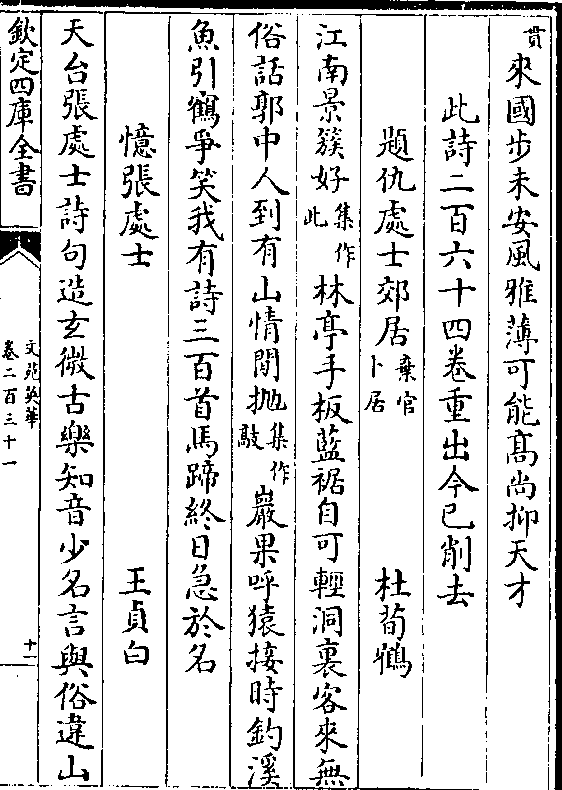 貰來國步未安風雅薄可能髙尚抑天才
此詩二百六十四卷重出今已削去
題仇處士郊居棄官卜居 杜荀鶴
江南景簇好集作此林亭手板藍裾自可輕洞裏客來無
俗話郭中人到有山情閒抛集作敲巖果呼猿接時釣溪
魚引鶴爭笑我有詩三百首馬蹄終日急於名
憶張處士 王貞白
天台張處士詩句造玄微古樂知音少名言與俗違山
欽定四庫全書
文苑英華
卷二百三十一
十一